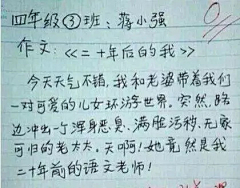 四年级③班：蒋小强
作文：《二十年后的我》
今天天气不错，我和老婆带着我们
一对可爱的儿女环游世界。突然，路
边冲出一个浑身恶臭、满脸污秽、无家
可归的老太太。天啊！她竟然是我
二十年前的语文老师！